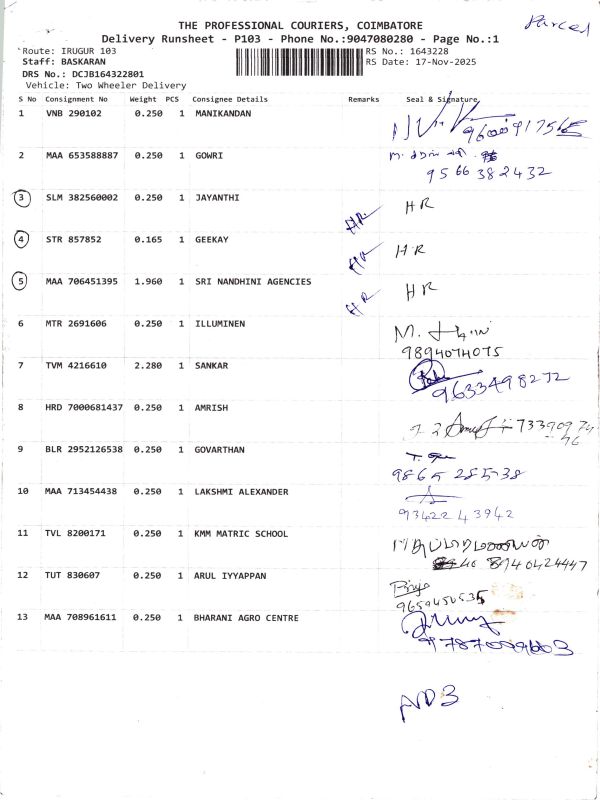 Parcel
THE PROFESSIONAL COURIERS, COIMBATORE
Delivery Runsheet - P103 - Phone No.:9047080280 - Page No.:1
Route: IRUGUR 103 RS No.: 1643228
Staff: BASKARAN RS Date: 17-Nov-2025
DRS No.: DCJB164322801
Vehicle: Two Wheeler Delivery
S No Consignment No Weight PCS Consignee Details Remarks Seal & Signature
1 VNB 290102 0.250 1 MANIKANDAN
2 MAA 653588887 0.250 1 GOWRI
9566382432
3 SLM 382560002 0.250 1 JAYANTHI HR HR
4 STR 857852 0.165 1 GEEKAY HR HR
5 MAA 706451395 1.960 1 SRI NANDHINI AGENCIES HR HR
6 MTR 2691606 0.250 1 ILLUMINEN
9894074075
7 TVM 4216610 2.280 1 SANKAR
9633498272
8 HRD 7000681437 0.250 1 AMRISH
9 BLR 2952126538 0.250 1 GOVARTHAN
9865 285538
10 MAA 713454438 0.250 1 LAKSHMI ALEXANDER
9342243942
11 TVL 8200171 0.250 1 KMM MATRIC SCHOOL
8940424447
12 TUT 830607 0.250 1 ARUL IYYAPPAN
Priya
9659450535
13 MAA 708961611 0.250 1 BHARANI AGRO CENTRE